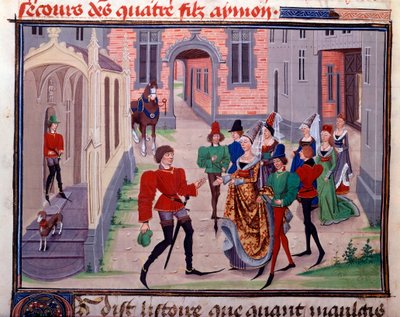 secours des quatre filz aymon.
dist listoire que quant maugis